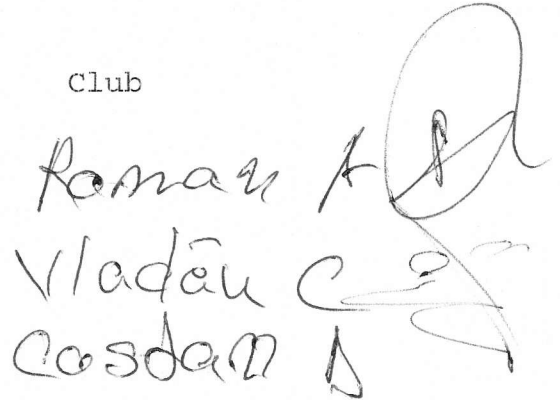 Club
Roman A
Vladău C
Cosdan D